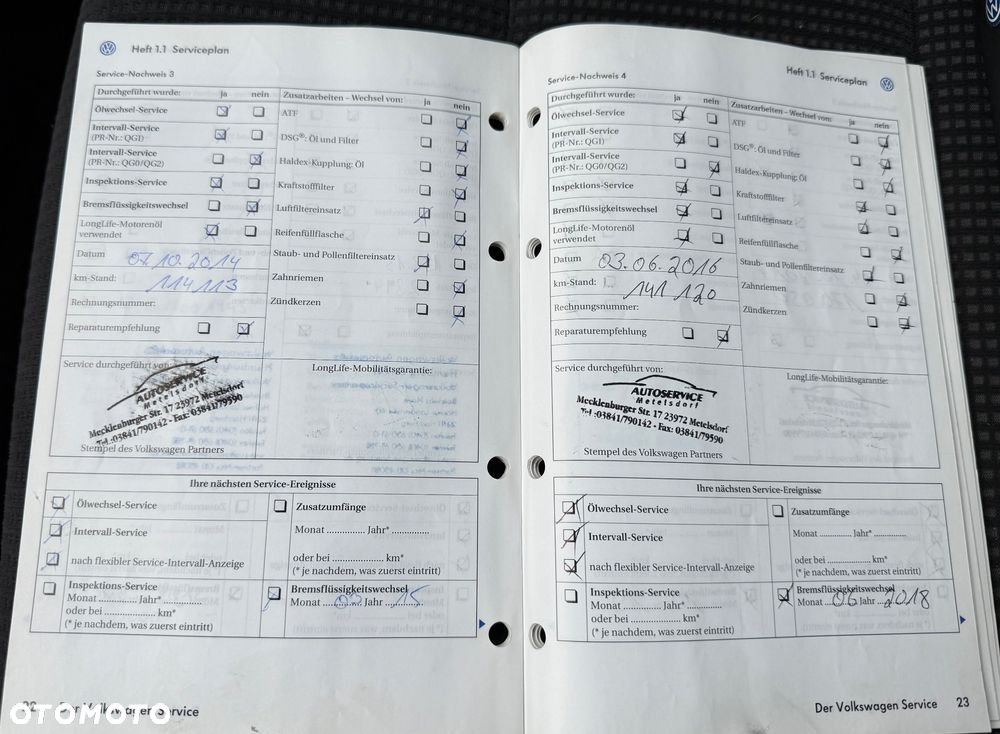 Heft 1.1 Serviceplan
Service-Nachweis 3
Durchgeführt wurde: ja nein
Ölwechsel-Service
Intervall-Service
(PR-Nr.: QGI)
Intervall-Service
(PR-Nr.: QG0/QG2)
Inspektions-Service
Bremsflüssigkeitswechsel
LongLife-Motorenöl
verwendet
Datum 07.10.2014
km-Stand: 114 113
Rechnungsnummer:
Reparaturempfehlung
Zusatzarbeiten – Wechsel von: ja nein
ATF
DSG®: Öl und Filter
Haldex-Kupplung: Öl
Kraftstofffilter
Luftfiltereinsatz
Reifenfüllflasche
Staub- und Pollenfiltereinsatz
Zahnriemen
Zündkerzen
Service durchgeführt von:
AUTOSERVICE
Metelsdorf
Mecklenburger Str. 17 23972 Metelsdorf
Tel.:03841/790142 - Fax: 03841/79590
Stempel des Volkswagen Partners
LongLife-Mobilitätsgarantie:
Ihre nächsten Service-Ereignisse
Ölwechsel-Service
Intervall-Service
nach flexibler Service-Intervall-Anzeige
Zusatzumfänge
Monat ............... Jahr* ...............
oder bei .................... km*
(* je nachdem, was zuerst eintritt)
Inspektions-Service
Monat ............... Jahr* ...............
oder bei .................... km*
(* je nachdem, was zuerst eintritt)
Bremsflüssigkeitswechsel
Monat Jahr 15
22 Der Volkswagen Service
OTOMOTO
Heft 1.1 Serviceplan
Service-Nachweis 4
Durchgeführt wurde: ja nein
Ölwechsel-Service
Intervall-Service
(PR-Nr.: QGI)
Intervall-Service
(PR-Nr.: QG0/QG2)
Inspektions-Service
Bremsflüssigkeitswechsel
LongLife-Motorenöl
verwendet
Datum 03.06.2016
km-Stand: 141 120
Rechnungsnummer:
Reparaturempfehlung
Zusatzarbeiten – Wechsel von: ja nein
ATF
DSG®: Öl und Filter
Haldex-Kupplung: Öl
Kraftstofffilter
Luftfiltereinsatz
Reifenfüllflasche
Staub- und Pollenfiltereinsatz
Zahnriemen
Zündkerzen
Service durchgeführt von:
AUTOSERVICE
Metelsdorf
Mecklenburger Str. 17 23972 Metelsdorf
Tel.:03841/790142 - Fax: 03841/79590
Stempel des Volkswagen Partners
LongLife-Mobilitätsgarantie:
Ihre nächsten Service-Ereignisse
Ölwechsel-Service
Intervall-Service
nach flexibler Service-Intervall-Anzeige
Zusatzumfänge
Monat ............... Jahr* ...............
oder bei .................... km*
(* je nachdem, was zuerst eintritt)
Inspektions-Service
Monat ............... Jahr* ...............
oder bei .................... km*
(* je nachdem, was zuerst eintritt)
Bremsflüssigkeitswechsel
Monat 06 Jahr 2018
Der Volkswagen Service 23